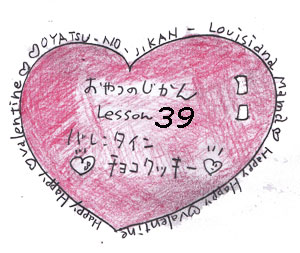 OYATSU-NO-JIKAN - Louisiana Mama ♡ Happy Happy ♡ Valentine
Happy Happy ♡ Valentine ♡
おやつのじかん
Lesson 39
バレンタイン
チョコクッキー